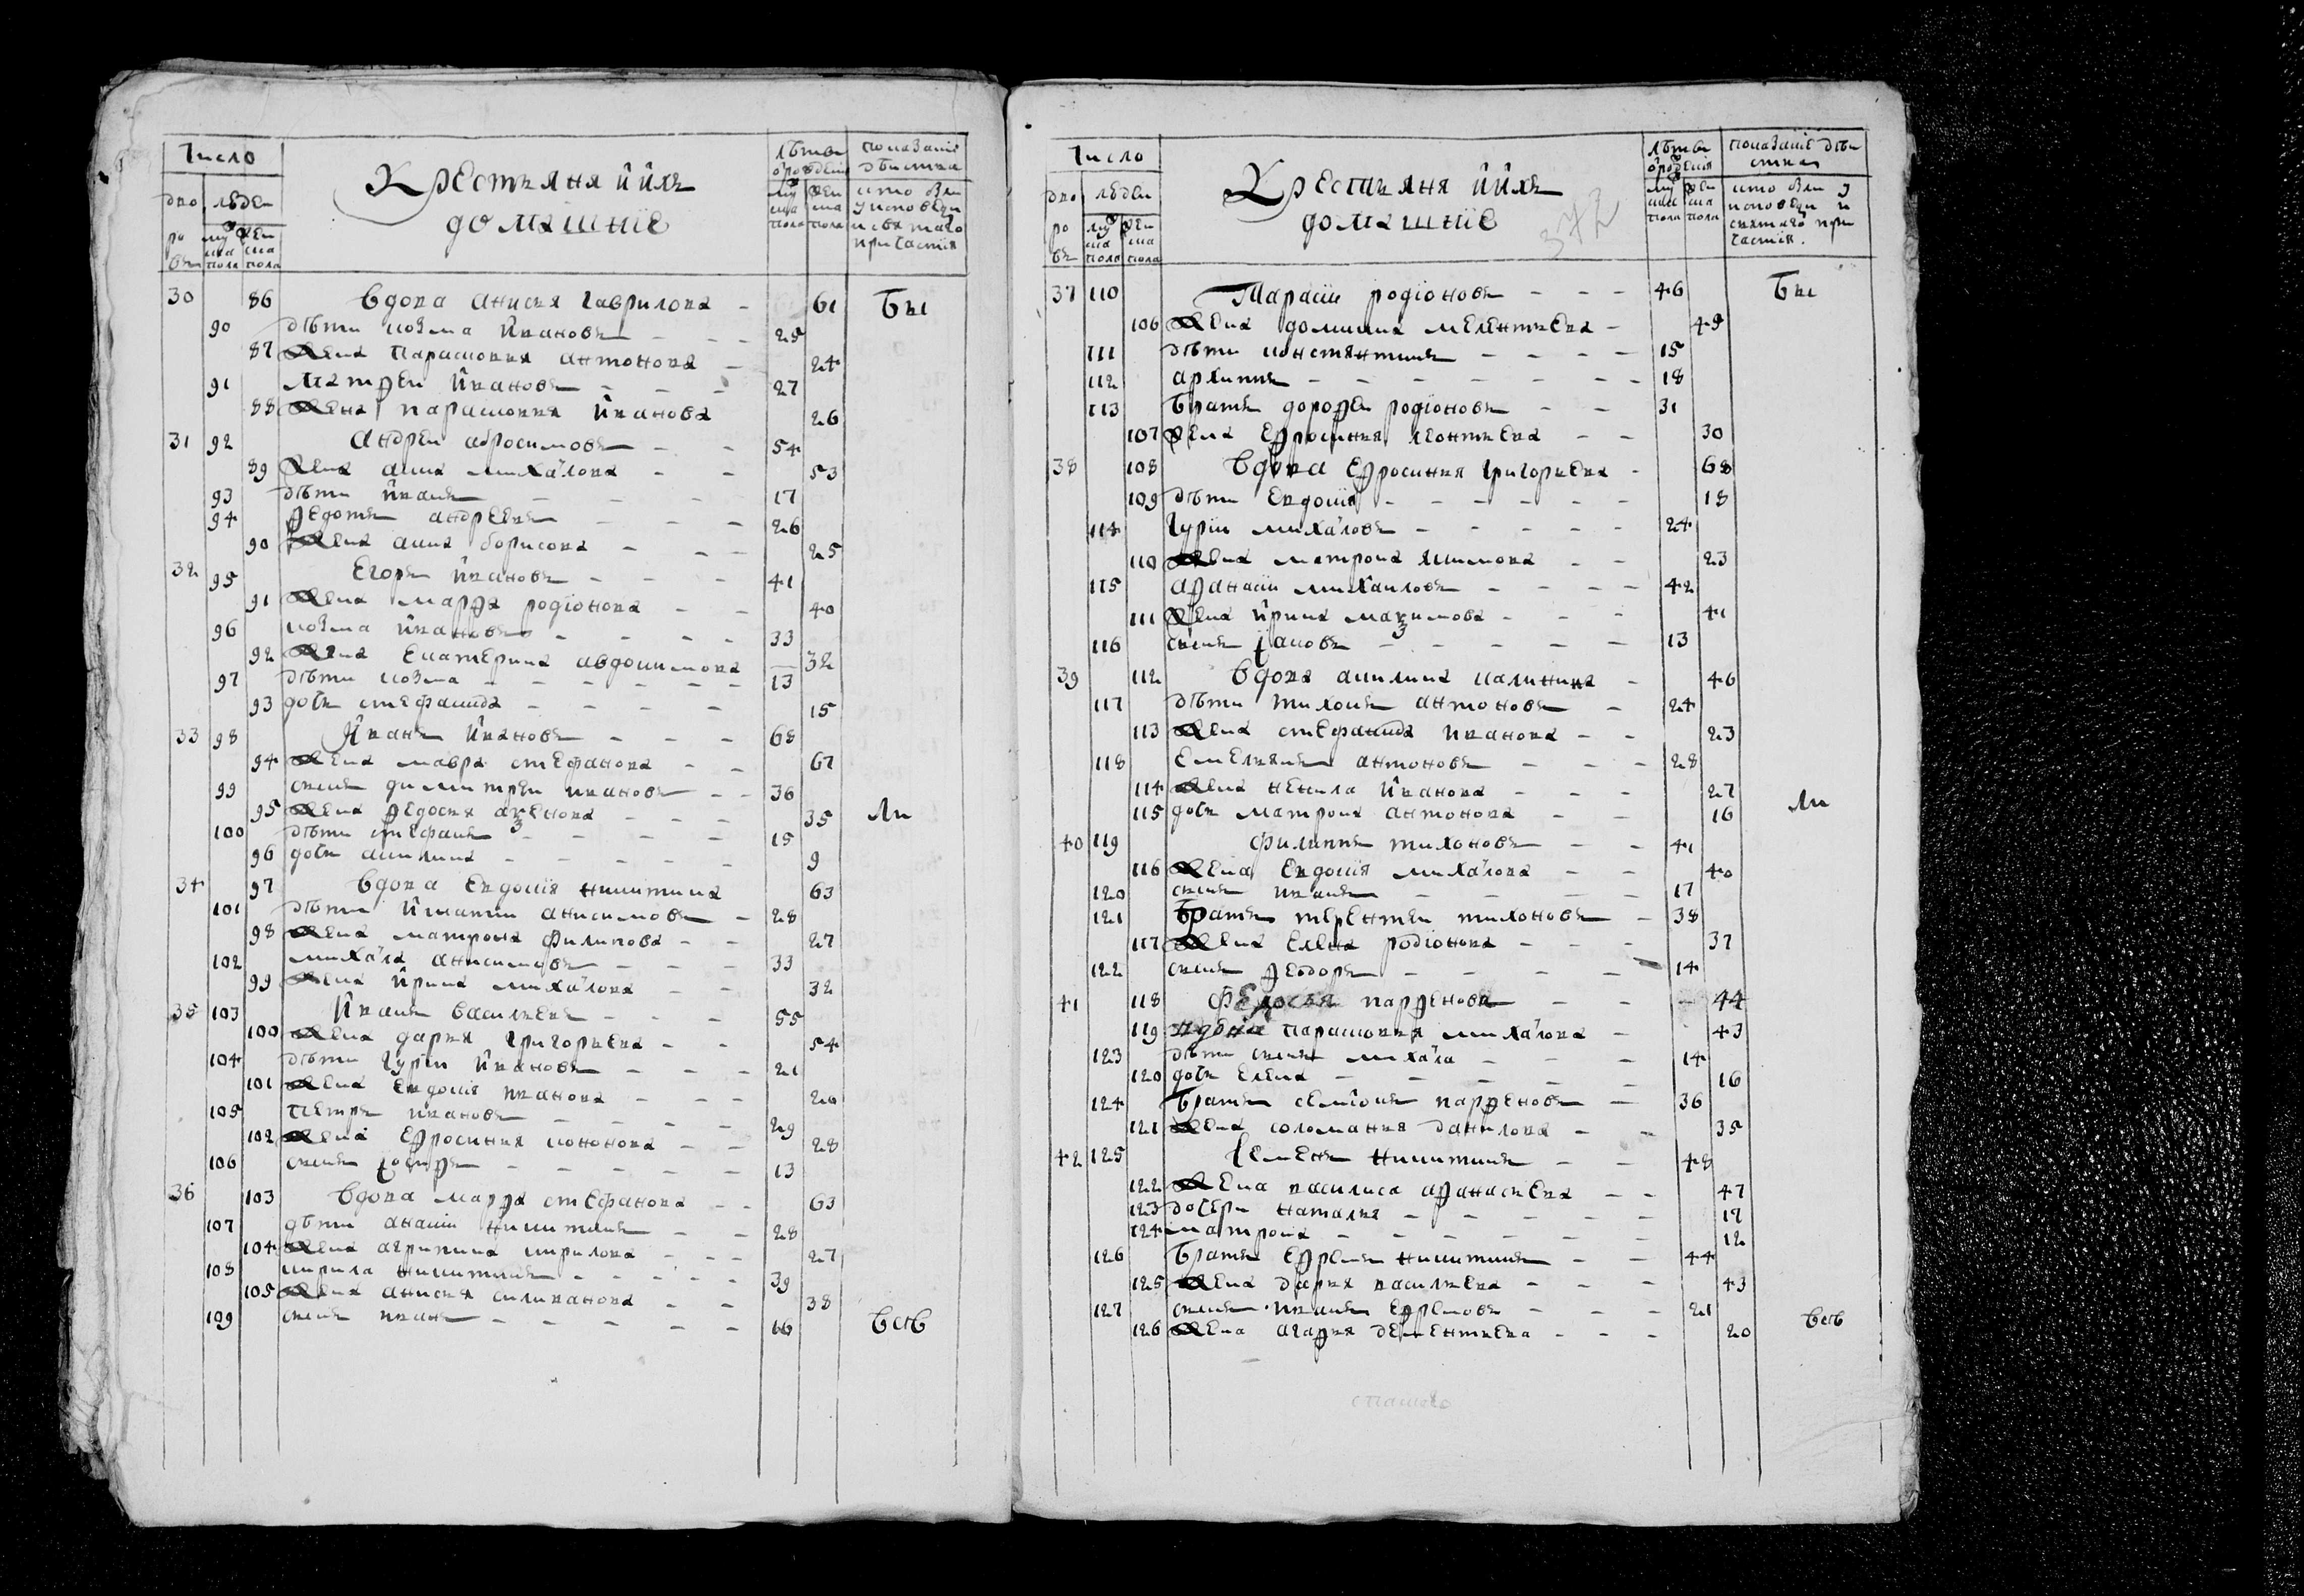 Число
дво
ровъ
людей
муска пола
жен ска пола
Крестьяня и ихъ
домашніе
лѣта от рожденія
муска пола
жен ска пола
показаніе дѣйства
кто былъ у исповеди и святаго причастія
30 86 Вдова анисья гаврилова - 61 Бы
90 дѣти козма Ивановъ - - - 25
87 жена парасковья антонова - 24
91 матфеи Ивановъ - - - 27
88 жена парасковья Иванова 26
31 92 андреи абросимовъ - - 54
89 жена анна михаилова - - 53
93 дѣти Иванъ - - - 17
94 федотъ андреевъ - - - 26
90 жена анна борисова - - - 25
32 95 Егоръ Ивановъ - - - 41
91 жена марфа родіонова - - 40
96 козма Ивановъ - - - - 33
92 жена Екатерина авдокимова 32
97 дѣти козма - - - - - - 13
93 дочь стефанида - - - - 15
33 98 Иванъ Ивановъ - - - 68
94 жена мавра стефанова - - 67
99 сынъ димитреи ивановъ - - 36
95 жена федосья - - - 35 Ли
100 дѣти стефанъ - - - - 15
96 дочь акилина - - - - - 9
34 97 Вдова Евдокія никитина 63
101 дѣти Игнатии анисимовъ - 28
98 жена матрона филипова - - 27
102 михаила анисимовъ - - - 33
99 жена Ирина михаилова - - 32
35 103 Иванъ Васильевъ - - - 55
100 жена дарья григорьева - - 54
104 дѣти гуріи Ивановъ - - - 21
101 жена Евдокія иванова - - - 20
105 петръ ивановъ - - - - 29
102 жена Ефросинья кононова - - 28
106 сынъ - - - - - - 13
36 103 Вдова марфа стефанова - - 63
107 дѣти ананіи никитинъ - - 28
104 жена агрипина кирилова - - - 27
108 кирила никитинъ - - - - - 39
105 жена анисья силиванова - - 38
109 сынъ иванъ - - - - - - 16 Всѣ
Число
дво
ровъ
людей
муска пола
жен ска пола
Крестьяня ихъ
домашніе
372
лѣта от рожденія
муска пола
жен ска пола
показаніе дѣйства
кто былъ у исповеди и святаго причастія.
37 110 Тарасіи родіоновъ - - - 46 Бы
106 жена домника мелентьева - 49
111 дѣти константинъ - - - - 15
112 архипъ - - - - - - - 18
113 братъ дорофеи родіоновъ - - 31
107 жена Ефросинья леонтьева - - 30
38 108 Вдова Ефросинья григорьева - 68
109 дѣти Евдокія - - - - - - 18
114 гуріи михаиловъ - - - - - 24
110 жена матрона якимова - - 23
115 афанасіи михаиловъ - - - - 42
111 жена Ирина максимова - - - 41
116 сынъ яковъ - - - - - 13
39 112 Вдова акилина калинина - 46
117 дѣти тихонъ антоновъ - 24
113 жена стефанида иванова - - 23
118 Емельянъ антоновъ - - - 28
114 жена ненила Иванова - - - 27
115 дочь матрона антонова - - 16 Ли
40 119 Филипъ тихоновъ - - 41
116 жена Евдокія михаилова - - 40
120 сынъ иванъ - - - - - 17
121 братъ терентеи тихоновъ - 38
117 жена Елена родіонова - - - 37
122 сынъ феодоръ - - - - 14
41 118 Федосья парфенова - - - 44
119 парасковья михаилова - 43
123 дѣти сынъ михаила - - - 14
120 дочь Елена - - - - - 16
124 братъ семіонъ парфеновъ - 36
121 жена соломанья данилова - - 35
42 125 Семенъ никитинъ - - 48
122 жена василиса афанасьева - - 47
123 дочери наталья - - - - - 17
124 матрона - - - - - - 12
126 братъ Ефремъ никитинъ - - 44
125 жена дарья васильева - - - 43
127 сынъ иванъ Ефремовъ - - - 21
126 жена агафья дементьева - - - 20 Всѣ